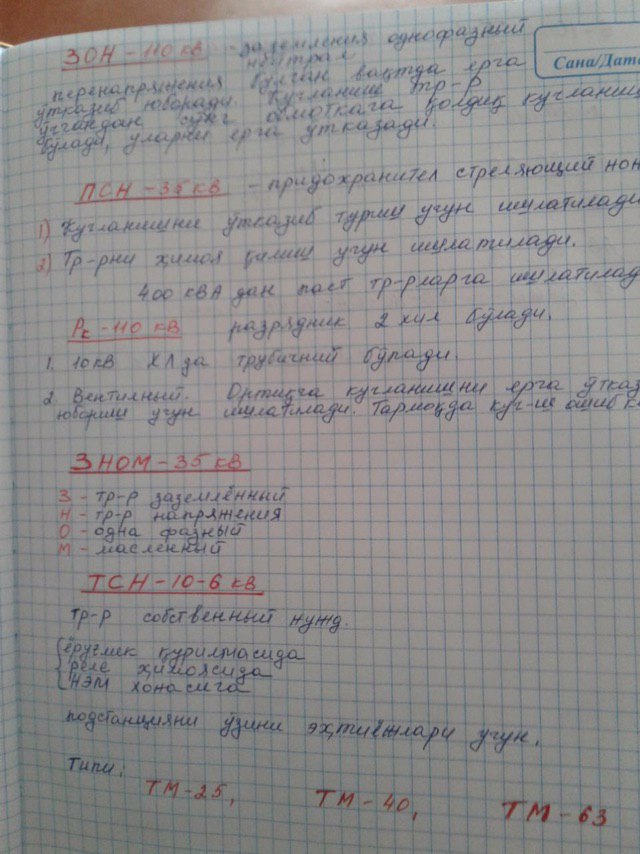 ЗОН-110 кв - заземления однофазный
нейтрал
Сана/Дата
перенапряжения бўлган вақтда ерга
ўтказиб юборади. Кугланиш тр-р
ўчгандан сунг обмоткага қолдиқ кугланиш
бўлади, уларни ерга утказади.
ПСН-35 кВ - придохранител стреляющий
1) Кугланишни ўтказиб туриш учун ишлатилади
2) Тр-рни ҳимоя қилиш учун ишлатилади.
400 кВА дан паст тр-рларга ишлатилад
Рс-110 кВ разрядник 2 хил бўлади.
1. 10кв ХЛ за трубичний бўлади.
2. Вентилный. Ортиқча кугланишни ерга ўтказ
юбориш учун ишлатилади. Тармоқда куг-ие ошиб к
ЗНОМ-35 кВ
З - тр-р заземлённый
Н - тр-р напряжения
О - одна фазный
М - масленный
ТСН-10-6 кВ
тр-р собственный нужд.
ёруглик қурилмасида
реле ҳимоясида
НЭМ хонасига
подстанцияни ўзини эҳтиёжлари учун.
типи:
ТМ-25, ТМ-40, ТМ-63